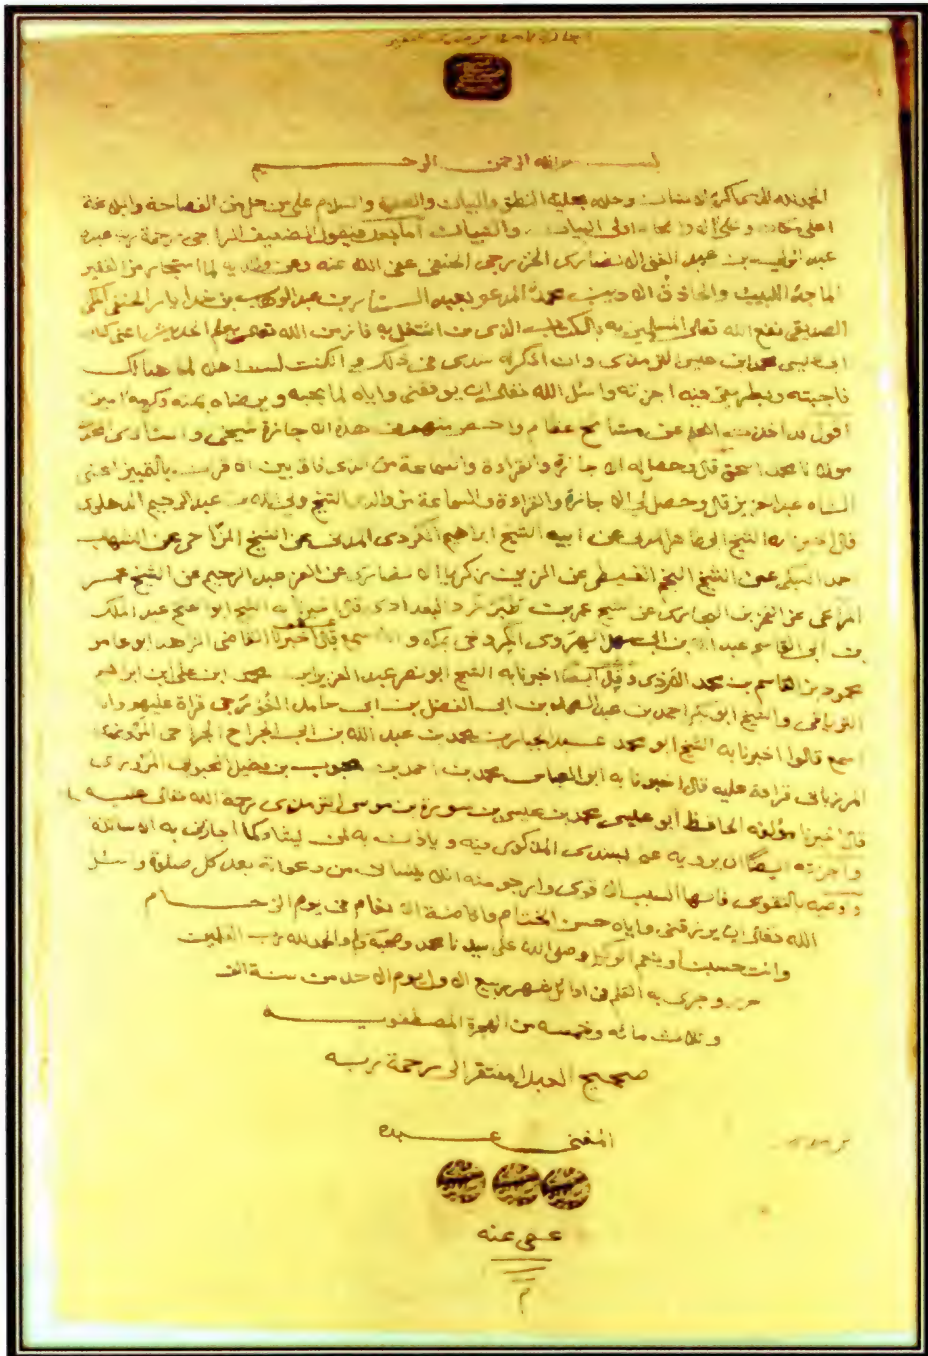 بسم الله الرحمن الرحيم
الحمد لله الذي اكرم الانسان وحلاه بحلية النطق والبيان والصلوة والسلام على من حل من الفصاحة والبلاغة
اعلى مكان وعلى اله واصحابه اولى البيان والتبيان اما بعد فيقول الضعيف الراجي رحمة ربه عبده
عبد بن عبد الغني الانصاري الخزرجي الحنفي عفى الله عنه وعن والديه لما استجاز من الفقير
الماجد اللبيب والحاذق الاديب محمد المدعو بعبد الستار بن عبد الوهاب بن خدايار الحنفي المكي
الصديقي نفع الله تعالى المسلمين به بالكتاب الذي من اشتغل به فاز من الله تعالى بعلم الحديث اعني كتاب
ابي عيسى محمد ابن عيسى الترمذي وان اذكر له سندي في ذلك وان كنت لست اهلا لما هنالك
فاجبته وبطريقتي فيه اجزته واسئل الله تعالى ان يوفقني واياه لما يحبه ويرضاه بمنه وكرمه امين
اقول قد اخذت العلم عن مشايخ عظام واحصر منهم في هذه الاجازة شيخي واستاذي محمد
مولانا محمد اسحق قال وحصل له الاجازة والقراءة والسماعة من الذي فاق بين الاقران بالتمييز اعني
الشاه عبد العزيز قال وحصل لي الاجازة والقراءة والسماعة من والدي الشيخ ولي الله بن عبد الرحيم الدهلوي
قال اخبرنا به الشيخ ابو طاهر المدني عن ابيه الشيخ ابراهيم الكردي المدني عن الشيخ المزاحي عن الشهاب
احمد السبكي عن الشيخ النجم الغيطي عن الزين زكريا الانصاري عن العز عبد الرحيم عن الشيخ عمر
المراغي عن الفخر بن البخاري عن شيخ عمر بن طبرزد البغدادي قال اخبرنا به الشيخ ابو الفتح عبد الملك
بن ابي القاسم عبد الله بن ابي سهل الهروي الكروخي قراءة وانا اسمع قال اخبرنا القاضي الزاهد ابو عامر
محمود بن القاسم بن محمد الازدي وقال ايضا اخبرنا به الشيخ ابو نصر عبد العزيز ابن محمد ابن علي ابن ابراهيم
الترياقي والشيخ ابو بكر احمد بن عبد الصمد بن ابي الفضل بن ابي حامد الغورجي قراءة عليهم وانا
اسمع قالوا اخبرنا به الشيخ ابو محمد عبد الجبار بن محمد بن عبد الله بن ابي الجراح الجراحي المروزي
المرزباني قراءة عليه قال اخبرنا به ابو العباس محمد بن احمد بن محبوب بن فضيل المحبوبي المروزي
قال اخبرنا مؤلفه الحافظ ابو عيسى محمد بن عيسى بن سورة بن موسى الترمذي رحمة الله تعالى عليه
واجزته ايضا ان يرويه عني بسندي المذكور فيه وياذن به لمن يشاء كما اجازني به الاساتذة
واوصيه بالتقوى فانها السبب الاقوى وارجو منه ان لا ينساني من دعواته بعد كل صلوة واسئل
الله تعالى ان يرزقني واياه حسن الختام وافاضة الانعام في يوم الزحام
وانت حسبنا ونعم الوكيل وصلى الله على سيدنا محمد وصحبه والحمد لله رب العلمين
حرر وجرى به القلم في اوائل شهر ربيع الاول يوم الاحد من سنة الف
وثلاث مائه وخمسه من الهجرة المصطفويه
صحيح العبد المفتقر الى رحمة ربه
المغني عبده
عفى عنه
م